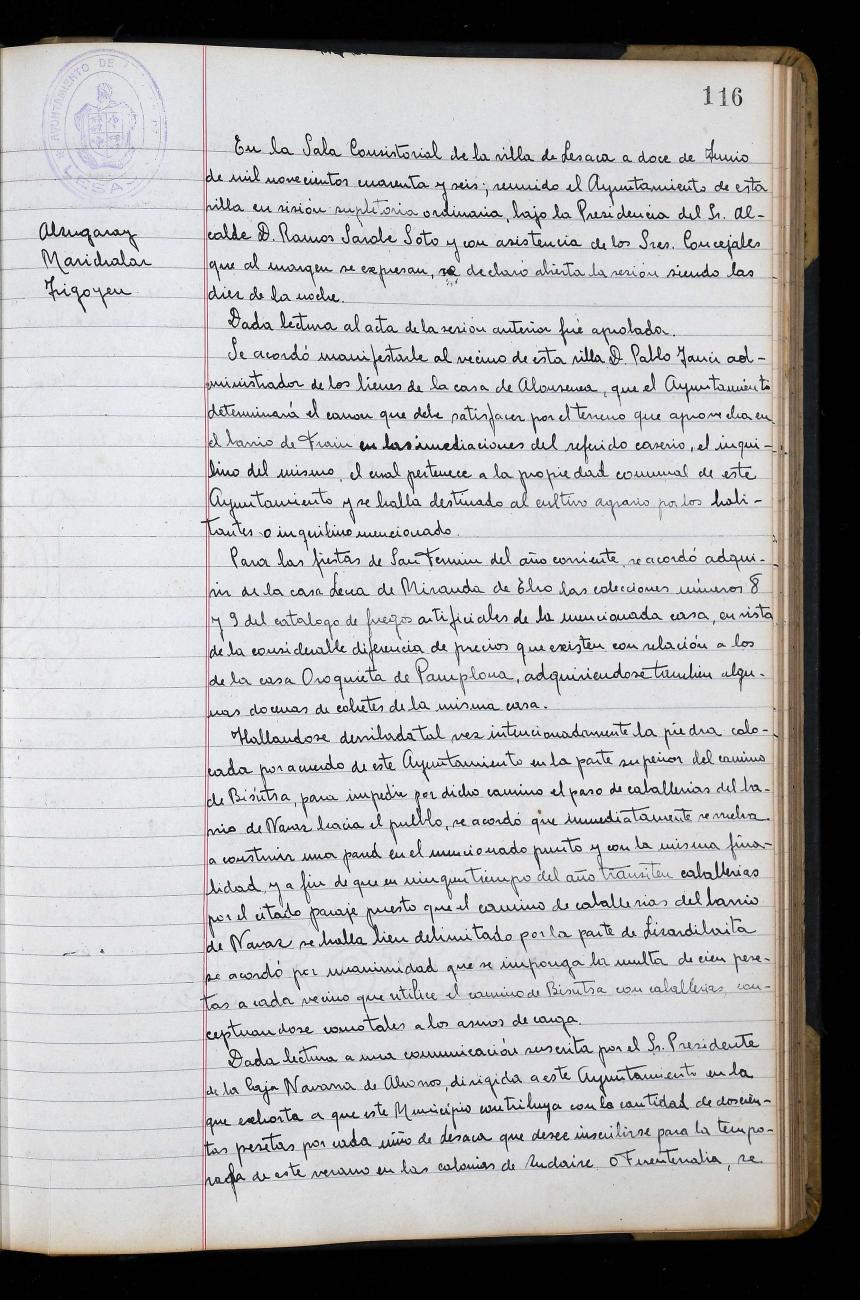 116
AYUNTAMIENTO DE
LESA
Alzugaray
Marichalar
Irigoyen
En la Sala Consistorial de la villa de Lesaca a doce de Junio
de mil novecientos cuarenta y seis; reunido el Ayuntamiento de esta
villa en sisión supletoria ordinaria, bajo la Presidencia del Sr. Al-
calde D. Ramos Sarobe Soto y con asistencia de los Sres. Concejales
que al margen se expresan, se declaró abierta la sesión siendo las
diez de la noche.
Dada lectura al acta de la sesión anterior fué aprobada.
Se acordó manifestarle al vecino de esta villa D. Pablo Janci ad-
ministrador de los bienes de la casa de que el Ayuntamiento
determinará el canon que debe satisfacer por el terreno que aprovecha en
el barrio de Frain en las imediaciones del referido caserio, el inqui-
lino del mismo, el cual pertenece a la propiedad comunal de este
Ayuntamiento y se halla destinado al cultivo agrario por los habi-
tantes o inquilino mencionado.
Para las fiestas de San Fermin del año corriente, se acordó adqui-
rir de la casa Lecea de Miranda de Ebro las colecciones números 8
y 9 del catalogo de fuegos artificiales de la mencionada casa, en vista
de la considerable diferencia de precios que existen con relación a los
de la casa Oroquieta de Pamplona, adquiriendose tambien algu-
nas docenas de cohetes de la misma casa.
Hallandose derribada tal vez intencionadamente la piedra colo-
cada por acuerdo de este Ayuntamiento en la parte superior del camino
de Bisutsa, para impedir por dicho camino el paso de caballerias del ba-
rrio de Navaz hacia el pueblo, se acordó que inmediatamente se vuelva
a construir una pared en el mencionado punto y con la misma fina-
lidad, y a fin de que en ningun tiempo del año transiten caballerias
por el citado paraje puesto que el camino de caballerias del barrio
de Navaz se halla bien delimitado por la parte de Lizardibaita
se acordó por unanimidad que se imponga la multa de cien pese-
tas a cada vecino que utilice el camino de Bisutsa con caballerias, con-
ceptuandose como tales a los asnos de carga.
Dada lectura a una comunicación suscrita por el Sr. Presidente
de la Caja Navarra de Ahorros, dirigida a este Ayuntamiento en la
que exhorta a que este Municipio contribuya con la cantidad de doscien-
tas pesetas por cada niño de Lesaca que desee inscribirse para la tempo-
rada de este verano en las colonias de Zudaire o Fuenterrabia, se